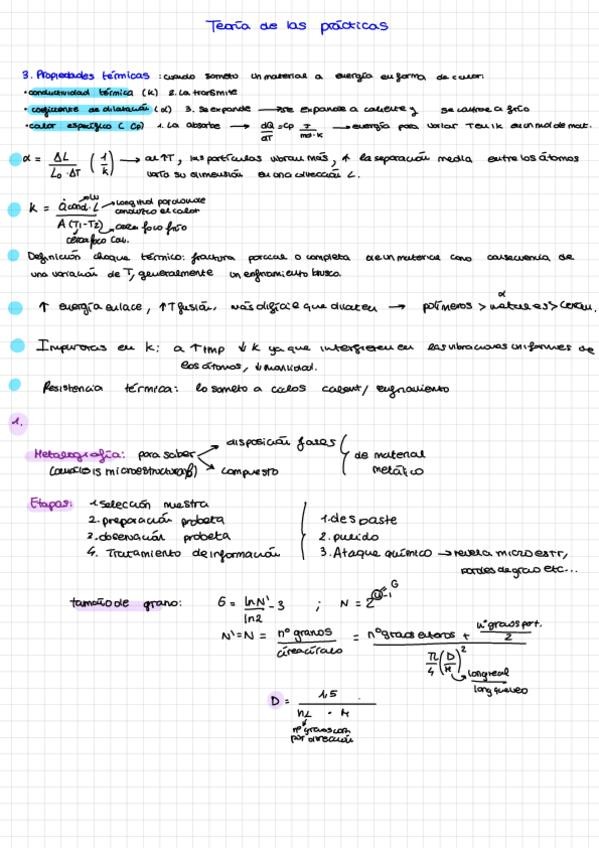 Teoría de las prácticas
3. Propiedades térmicas: cuando someto un material a energía en forma de calor:
• conductividad térmica (k) 2. La transmite
• coeficiente de dilatación (α) 3. Se expande → se expande a caliente y se contrae a frío
• calor específico (Cp) 1. La absorbe → dQ/dT = Cp J/mol·K → energía para variar T en 1K en un mol de mat.
α = ΔL / L₀·ΔT (1/K) → al ↑T, las partículas vibran más, ↑ la separación media entre los átomos
varía su dimensión en una dirección L.
k = Q̇cond·L / A(T1-T2) W longitud por donde conduzco el calor
cara foco frío
cara foco cal.
Definición choque térmico: fractura parcial o completa de un material como consecuencia de
una variación de T, generalmente un enfriamiento brusco.
↑ energía enlace, ↑T fusión, más difícil que dilaten → α polímeros > metales > cerám.
Impurezas en k: a ↑ imp ↓ k ya que interfieren en las vibraciones uniformes de
los átomos, ↓ movilidad.
Resistencia térmica: lo someto a ciclos calent/ enfriamiento
1.
Metalografía: para saber disposición fases de material
(análisis microestructural) compuesto metálico
Etapas: 1. selección muestra
2. preparación probeta 1. desbaste
3. observación probeta 2. pulido
4. Tratamiento de información 3. Ataque químico → revela microestr,
bordes de grano etc...
tamaño de grano: G = lnN'/ln2 - 3 ; N = 2
N' = N = nº granos / área círculo = nº granos enteros + nº granos port. / 2
π/4 (D/M)² long real
long
D = 1,5 / nL · M
nº granos
por dirección